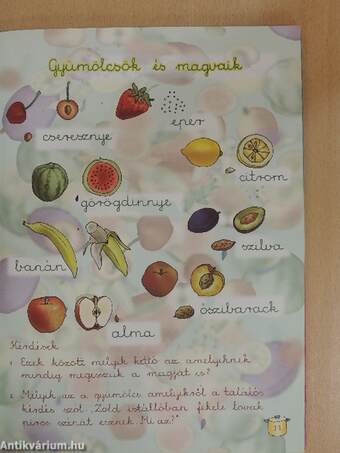 Gyümölcsök és magvaik
eper
cseresznye
citrom
görögdinnye
szilva
banán
őszibarack
alma
Kérdések
1. Ezek között melyik kettő az amelyiknek
mindig megesszük a magját is?
2. Melyik az a gyümölcs amelyikről a találós
kérdés szól: „Zöld istállóban fekete lovak
piros szénát esznek. Mi az?"
11
Antikvárium.hu